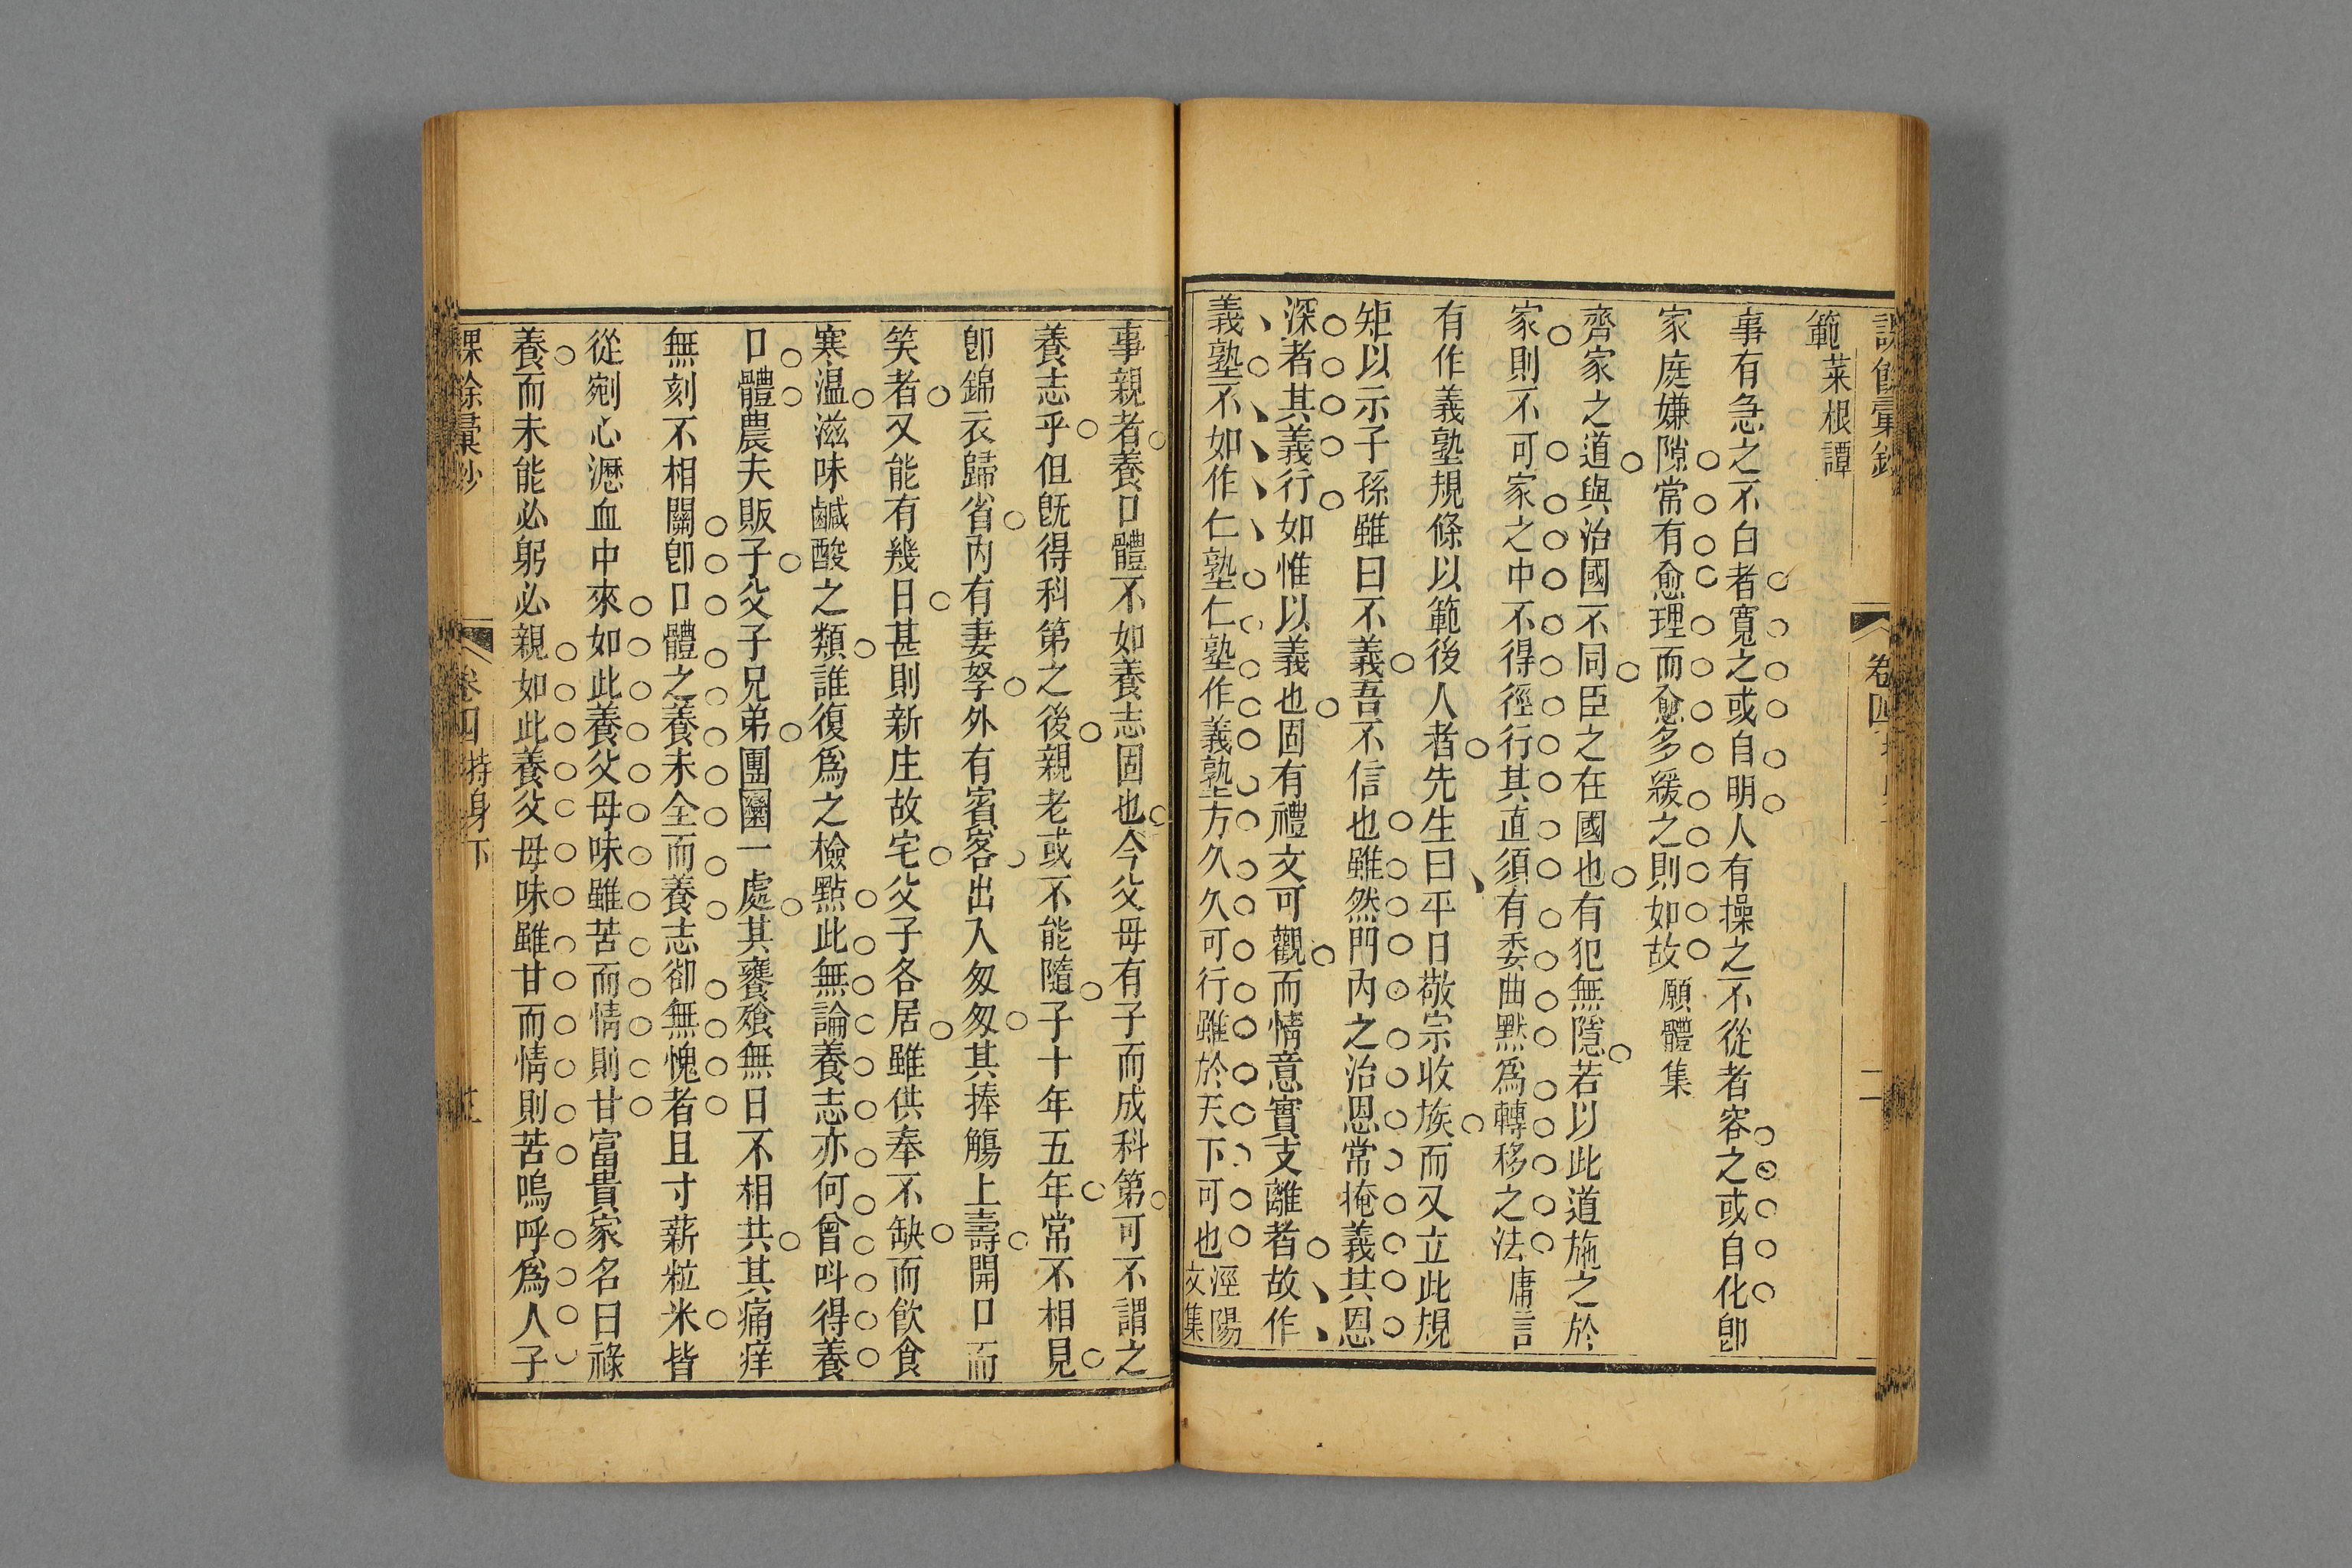 課餘彙鈔
卷四
二
範菜根譚
事有急之不白者寬之或自明人有操之不從者容之或自化卽
家庭嫌隙常有愈理而愈多緩之則如故願體集
齊家之道與治國不同臣之在國也有犯無隱若以此道施之於
家則不可家之中不得徑行其直須有委曲默爲轉移之法庸言
有作義塾規條以範後人者先生曰平日敬宗收族而又立此規
矩以示子孫雖曰不義吾不信也雖然門內之治恩常掩義其恩
深者其義行如惟以義也固有禮文可觀而情意實支離者故作
義塾不如作仁塾仁塾作義塾方久久可行雖於天下可也涇陽文集
事親者養口體不如養志固也今父母有子而成科第可不謂之
養志乎但旣得科第之後親老或不能隨子十年五年常不相見
卽錦衣歸省內有妻孥外有賓客出入匆匆其捧觴上壽開口而
笑者又能有幾日甚則新庄故宅父子各居雖供奉不缺而飲食
寒溫滋味鹹酸之類誰復爲之檢點此無論養志亦何曾呌得養
口體農夫販子父子兄弟團圞一處其饔飱無日不相共其痛痒
無刻不相關卽口體之養未全而養志卻無愧者且寸薪粒米皆
從剜心瀝血中來如此養父母味雖苦而情則甘富貴家名曰祿
養而未能必躬必親如此養父母味雖甘而情則苦嗚呼爲人子
課餘彙鈔
卷四 持身下